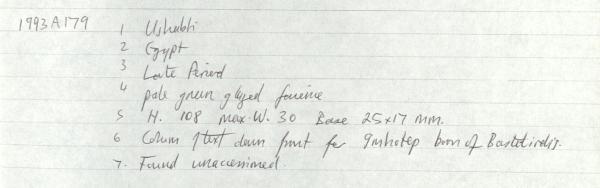 1993 A 179 1 Ushabti
2 Egypt
3 Late Period
4 pale green glazed faience
5 H. 108 max. W. 30 Base 25x17 mm.
6 Column of text down front for Imhotep born of Bastetirdis.
7. Found unaccessioned.